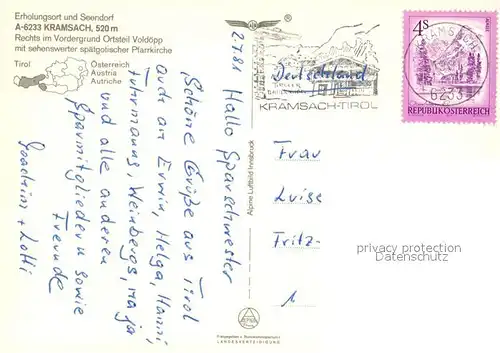 Erholungsort und Seendorf
A-6233 KRAMSACH, 520 m
Rechts im Vordergrund Ortsteil Voldöpp
mit sehenswerter spätgotischer Pfarrkirche
Tirol
Österreich
Austria
Autriche
2.7.81
Hallo Sparschwester
Schöne Grüße aus Tirol
auch an Erwin, Helga, Hanni,
Fuhrmanns, Weinbergs, Maja
und alle anderen
Sparmitglieder sowie
Freunde
Joachim + Lotti
Alpine Luftbild Innsbruck
LANDESVERTEIDIGUNG
Deutschland
KRAMSACH-TIROL
KRAMSACH
6233
4S
REPUBLIK ÖSTERREICH
Frau
Luise
Fritz-
1
privacy protection
Datenschutz